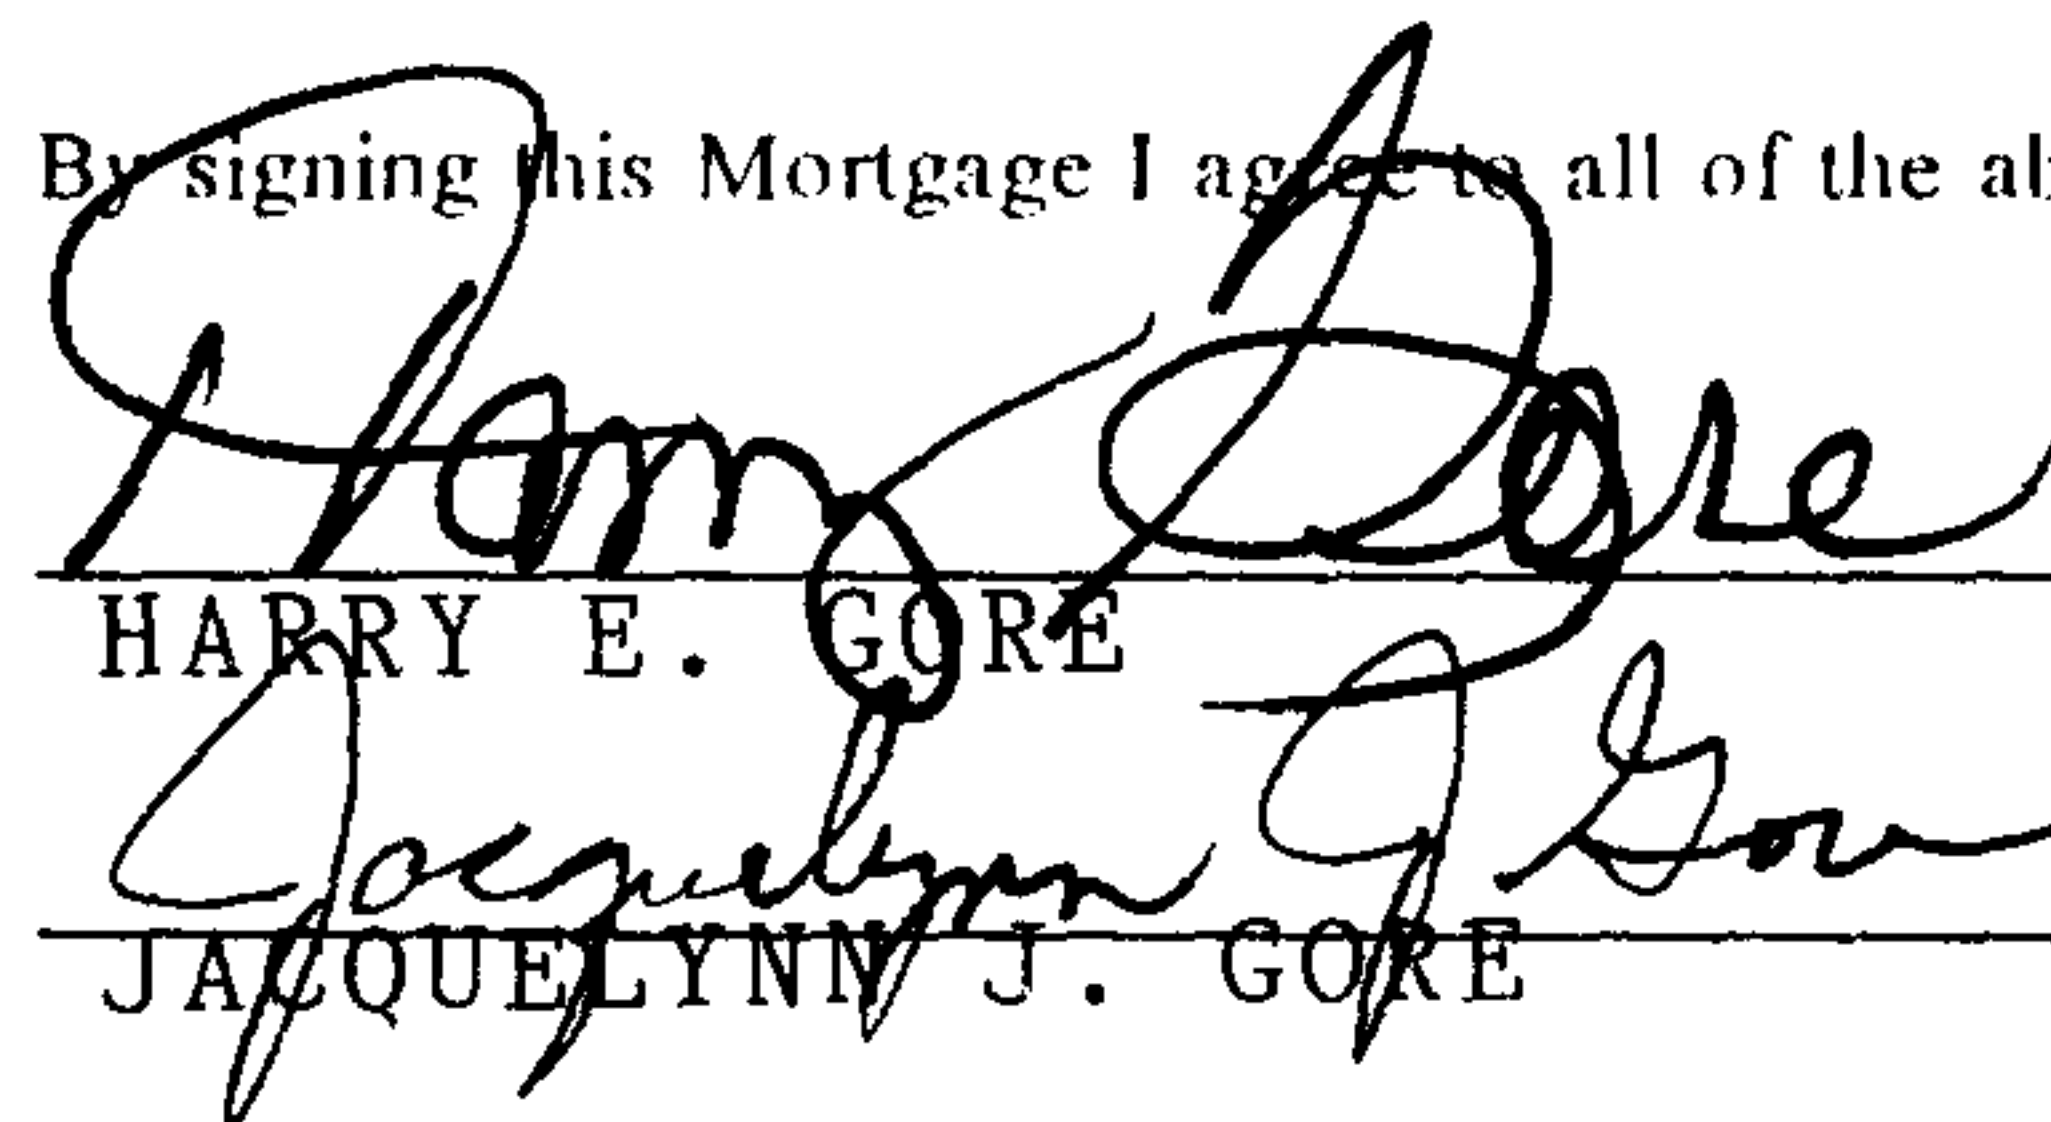 By signing this Mortgage I agree to all of the ab
Harry Gore
HARRY E. GORE
Jacquelynn J Gore
JACQUELYNN J. GORE